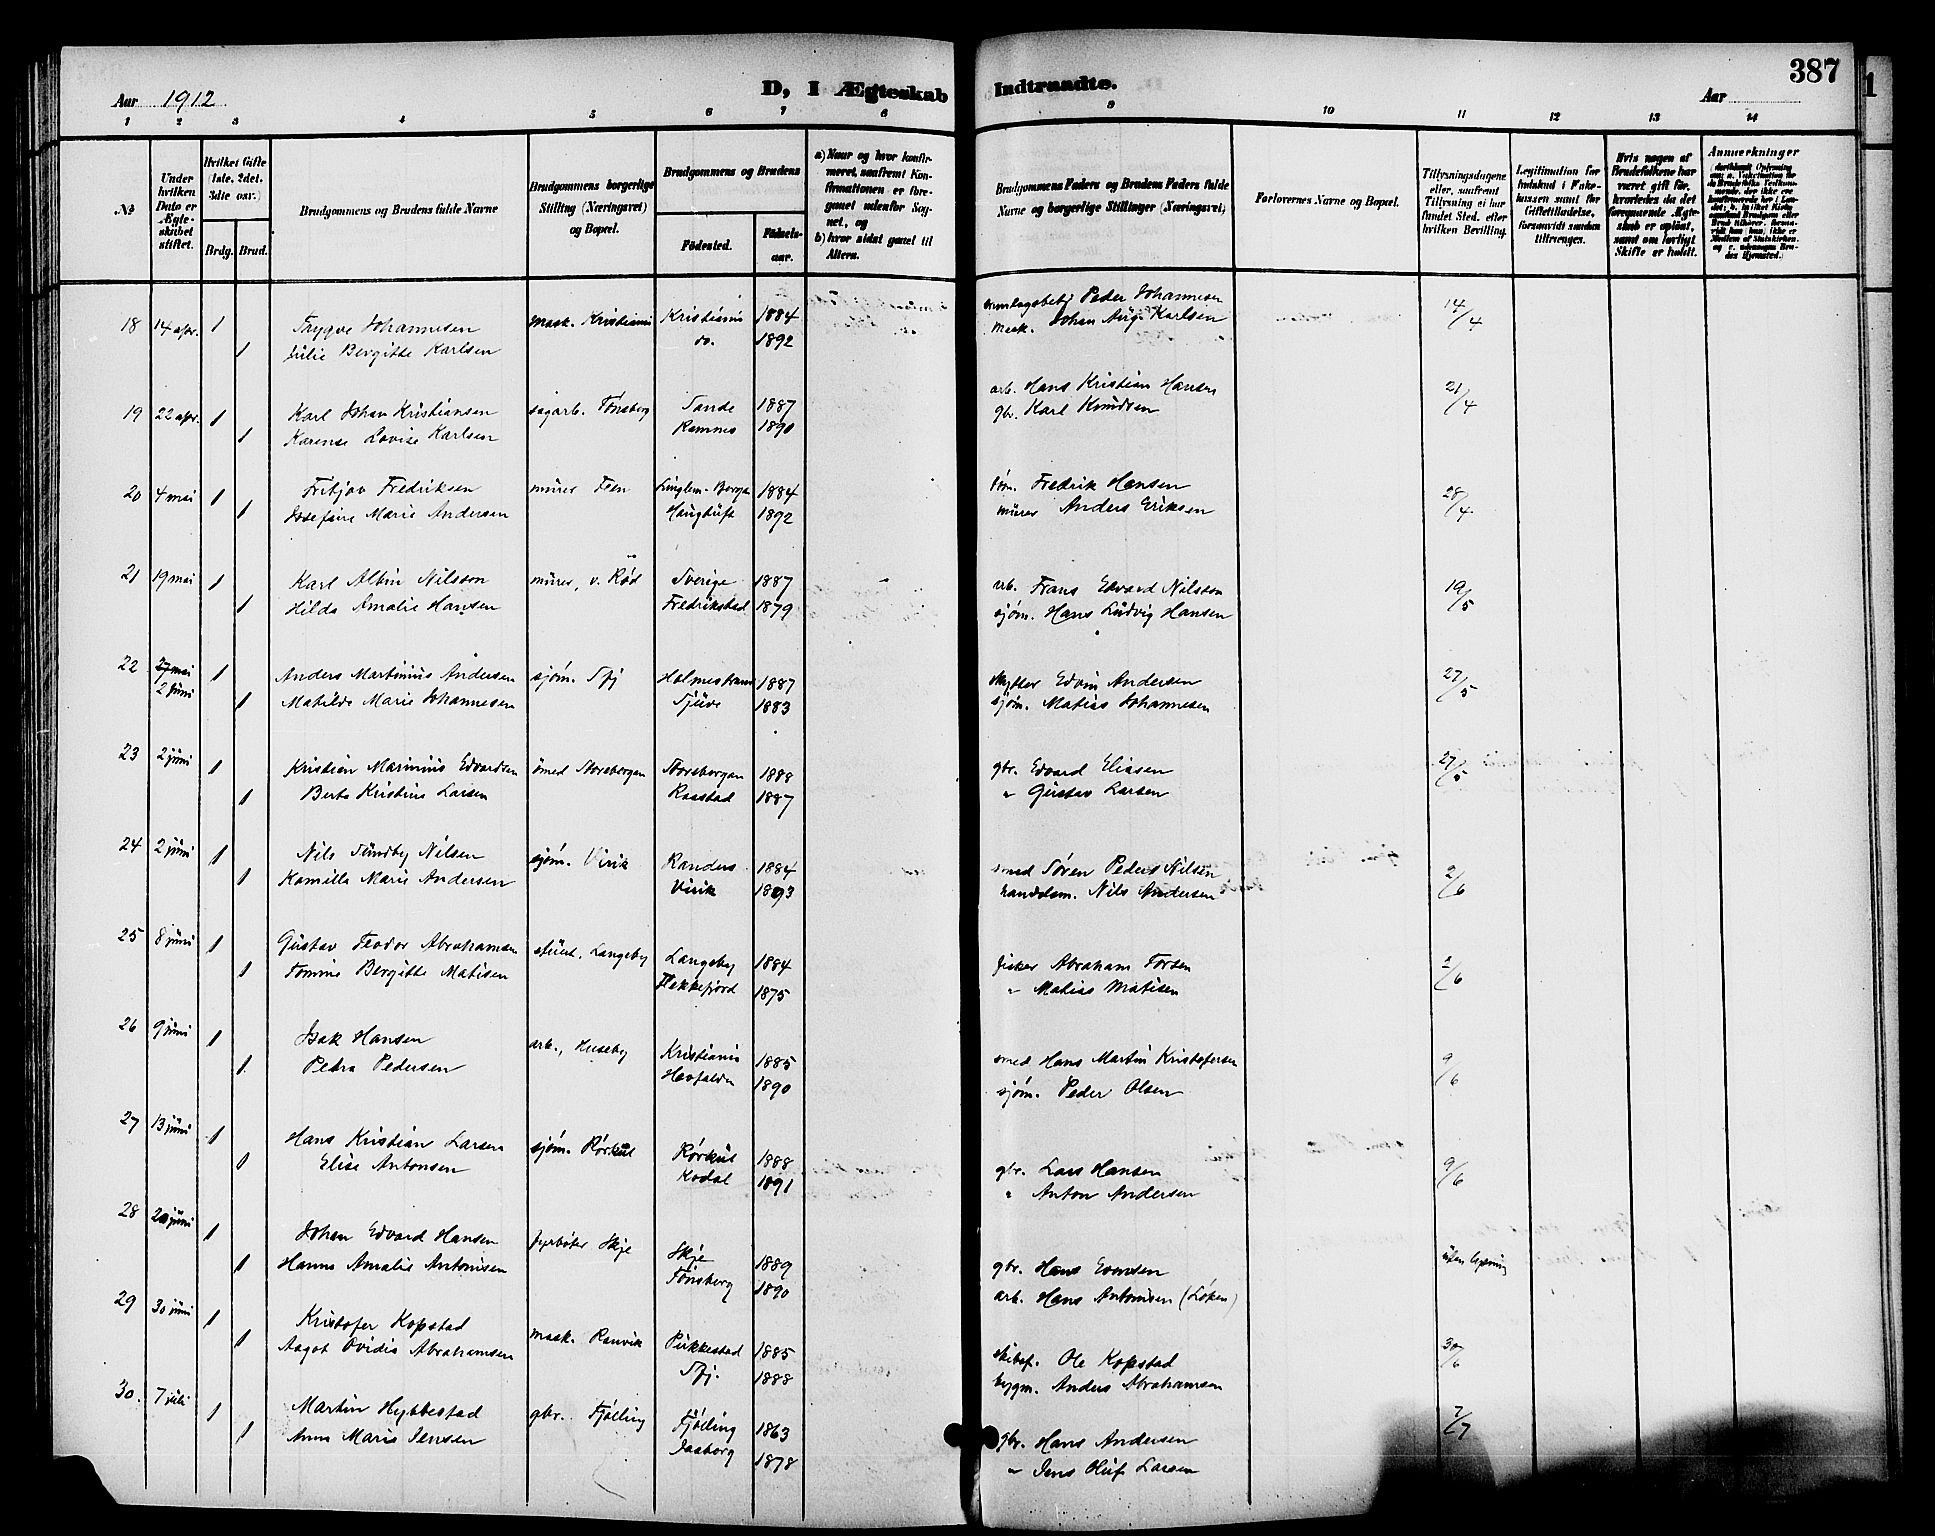 Aar 1912
D, I Ægteskab Indtraadte.
387
Aar
1 2 3 4 5 6 7 8 9 10 11 12 13 14
No.
Under hvilken Dato er Ægteskabet stiftet.
Hvilket Gifte (1ste, 2det, 3die osv.)
Brdg. Brud.
Brudgommens og Brudens fulde Navne
Brudgommens borgerlige Stilling (Næringsvei) og Bopæl.
Brudgommens og Brudens
Fødested.
Fødselsaar.
a) Naar og hvor konfirmeret, saafremt Konfirmationen er foregaaet udenfor Sognet, og
b) hvor sidst gaaet til Alters.
Brudgommens Faders og Brudens Faders fulde Navne og borgerlige Stillinger (Næringsvei)
Forlovernes Navne og Bopæl.
Tillysningsdagene eller, saafremt Tillysning ei har fundet Sted, efter hvilken Bevilling.
Legitimation for Indskud i Enkekassen samt for Giftetilladelse, forsaavidt saadan tiltrænges.
Hvis nogen af Brudefolkene har været gift før, hvorledes da det foregaaende Ægteskab er opløst, samt om lovligt Skifte er holdt.
Anmerkninger
18 14 apr. 1 Trygve Johannesen mask. Kristiania Kristiania 1884 Peder Johannesen 14/4
1 Julie Bergitte Karlsen do. 1892 mask. Johan Aug. Karlsen
19 22 apr. 1 Karl Johan Kristiansen sagarb. Tønsberg Sande 1887 arb. Hans Kristian Hansen 21/4
1 Karense Lovise Karlsen Ramnes 1890 gbr. Karl Knudsen
20 4 mai 1 Fritjov Fredriksen murer Fen 1884 tøm. Fredrik Hansen 28/4
1 Josefine Marie Andersen Haugtuft 1892 murer Anders Eriksen
21 19 mai 1 Karl Albin Nilsson murer, v. Rød Sverige 1887 arb. Frans Edvard Nilsson 19/5
1 Hilda Amalie Hansen Fredrikstad 1879 sjøm. Hans Ludvig Hansen
22 27 mai 2 juni 1 Anders Martinius Andersen sjøm. Sfj Holmestrand 1887 skytter Edvin Andersen 27/5
1 Matilde Marie Johannesen Tjuve 1883 sjøm. Matias Johannesen
23 2 juni 1 Kristian Marinius Edvardsen smed Storebergan Storebergan 1888 gbr. Edvard Eliasen 27/5
1 Berta Kristine Larsen Raastad 1887 " Gustav Larsen
24 2 juni 1 Nils Sundby Nilsen sjøm. Virik Randers 1884 smed Søren Peders Nilsen 2/6
1 Kamilla Marie Andersen Virik 1893 handelsm. Nils Andersen
25 8 juni 1 Gustav Teodor Abrahamsen stuert. Langeby Langeby 1884 fisker Abraham Torsen 2/6
1 Tomine Bergitte Matisen Flekkefjord 1875 " Matias Matisen
26 9 juni 1 Isak Hansen arb., Huseby Kristiania 1885 smed Hans Martin Kristofersen 9/6
1 Petra Pedersen 1890 sjøm. Peder Olsen
27 13 juni 1 Hans Kristian Larsen sjøm. Rørkul Rørkul 1888 gbr. Lars Hansen 9/6
1 Elise Antonsen Kodal 1891 " Anton Andersen
28 20 juni 1 Johan Edvard Hansen fyrbøter Skje Skje 1889 gbr. Hans Evensen uten lysning
1 Hanna Amalie Antonisen Tønsberg 1890 arb. Hans Antonisen (Løken)
29 30 juni 1 Kristofer Kopstad mask. Ranvik Pukkestad 1885 skibsf. Ole Kopstad 30/6
1 Aagot Ovidia Abrahamsen Sfj. 1888 bygm. Anders Abrahamsen
30. 7 juli 1 Martin Hybbestad gbr. Tjølling Tjølling 1863 gbr. Hans Andersen 7/7
1 Anna Marie Jensen Faaborg 1878 " Jens Oluf Larsen